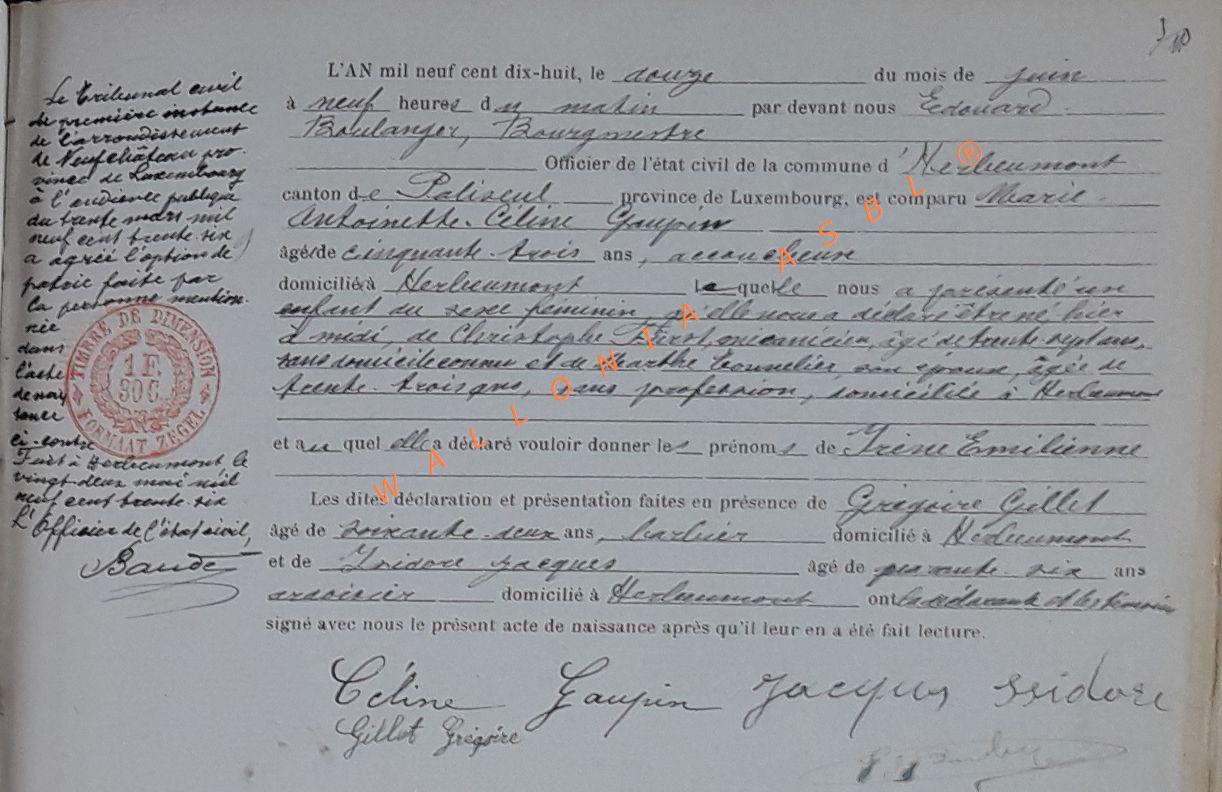 L'AN mil neuf cent dix-huit, le douze du mois de juin
à neuf heures du matin par devant nous Edouard
Boulanger, Bourgmestre
Officier de l'état civil de la commune d'Herbeumont
canton de Paliseul province de Luxembourg, est comparu Marie
Antoinette Céline Gaupin
âgé/de cinquante-trois ans, accoucheuse
domiciliéà Herbeumont laquelle nous a présenté un
enfant du sexe féminin, qu'elle nous a déclaré être né hier
à midi, de Christophe mécanicien, âgé de trente-sept ans,
sans domicile connu et de Marthe Tonnelier, son épouse, âgée de
trente-trois ans, sans profession, domiciliée à Herbeumont
et auquel elle a déclaré vouloir donner les prénoms de Irène Emilienne
Les dites déclaration et présentation faites en présence de Grégoire Gillet
âgé de soixante-deux ans, barbier domicilié à Herbeumont
et de Isidore Jacques âgé de six ans
ardoisier domicilié à Herbeumont ont la déclarante et les témoins
signé avec nous le présent acte de naissance après qu'il leur en a été fait lecture.
Céline Gaupin Jacques Isidore
Gillet Grégoire
Le Tribunal civil
de première instance
de l'arrondissement
de Neufchâteau pro-
vince de Luxembourg
à l'audience publique
du trente mars mil
neuf cent trente-six
a agréé l'option de
patrie faite par
la personne mention-
née
dans
l'acte
de nais
sance
ci-contre
Fait à Herbeumont, le
vingt-deux mai mil
neuf cent trente-six
L'Officier de l'état civil,
Baudet
TIMBRE DE DIMENSION
1 F.
50 C.
FORMAAT ZEGEL
WALLONIA ASBL ®